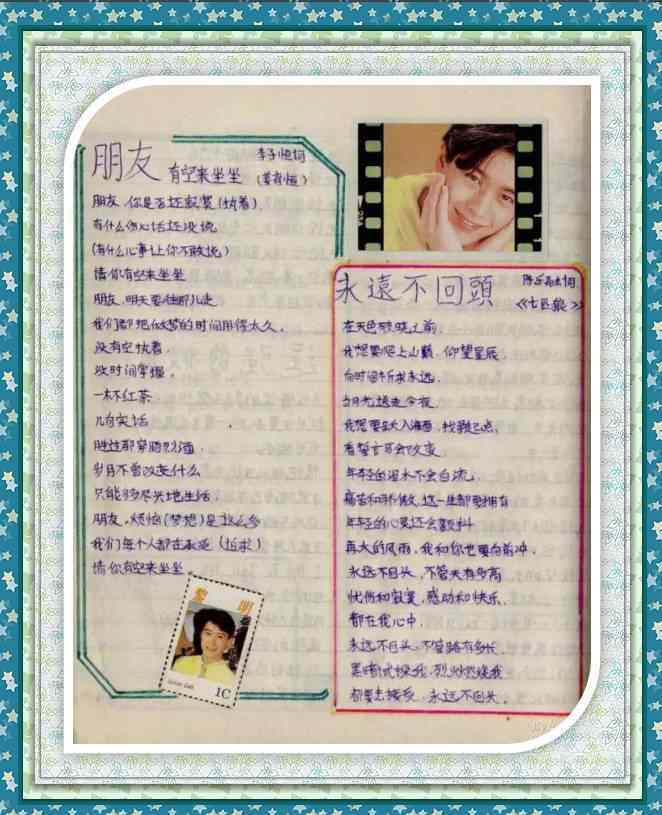 朋友 有空来坐坐
李子恒词
(姜育恒)
朋友,你是否还寂寞(执着)
有什么伤心话还没说
(有什么心事让你不敢说)
请你有空来坐坐
朋友,明天要往那儿走
我们都把做梦的时间用得太久,
没有空执着
没时间掌握。
一杯红茶
几句笑话
胜过那穿肠烈酒
岁月不曾改变什么
只能说尽兴地生活
朋友,烦恼(梦想)是怎么多
我们每个人都在承受(追求)
请你有空来坐坐。
黎明
1C
永遠不回頭
《七匹狼》
在天色破晓之前
我想要爬上山巅,仰望星辰
向时间祈求永远,
当月光送走今夜
我想要跃入海面,找寻起点,
看誓言可会改变,
年轻的泪水不会白流,
痛苦和骄傲,这一生都要拥有
年轻的心灵还会颤抖
再大的风雨,我和你也要向前冲,
永远不回头,不管天有多高
忧伤和寂寞,感动和快乐,
都在我心中,
永远不回头,不管路有多长
黑暗试探我,烈火燃烧我
都要去接受,永远不回头。